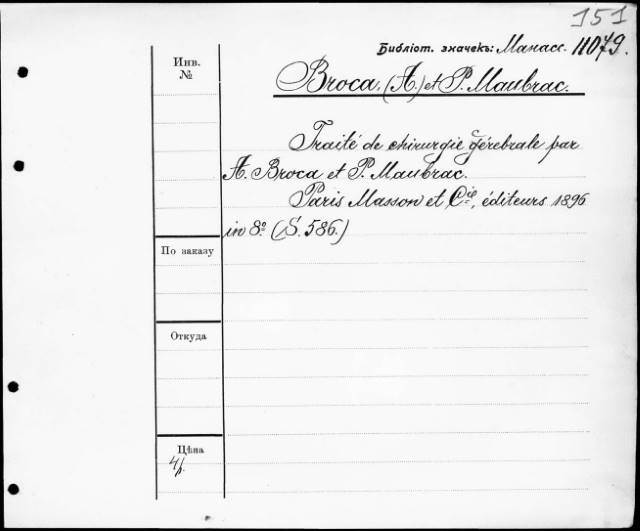 151
Библіот. значекъ: Манасс. 11079.
Инв.
№
Broca. (A.) et P. Maubrac.
Traité de chirurgie gérebrale par
A. Broca et P. Maubrac.
Paris Masson et Cie, éditeurs 1896
in 8º. (S. 586.)
По заказу
Откуда
Цѣна